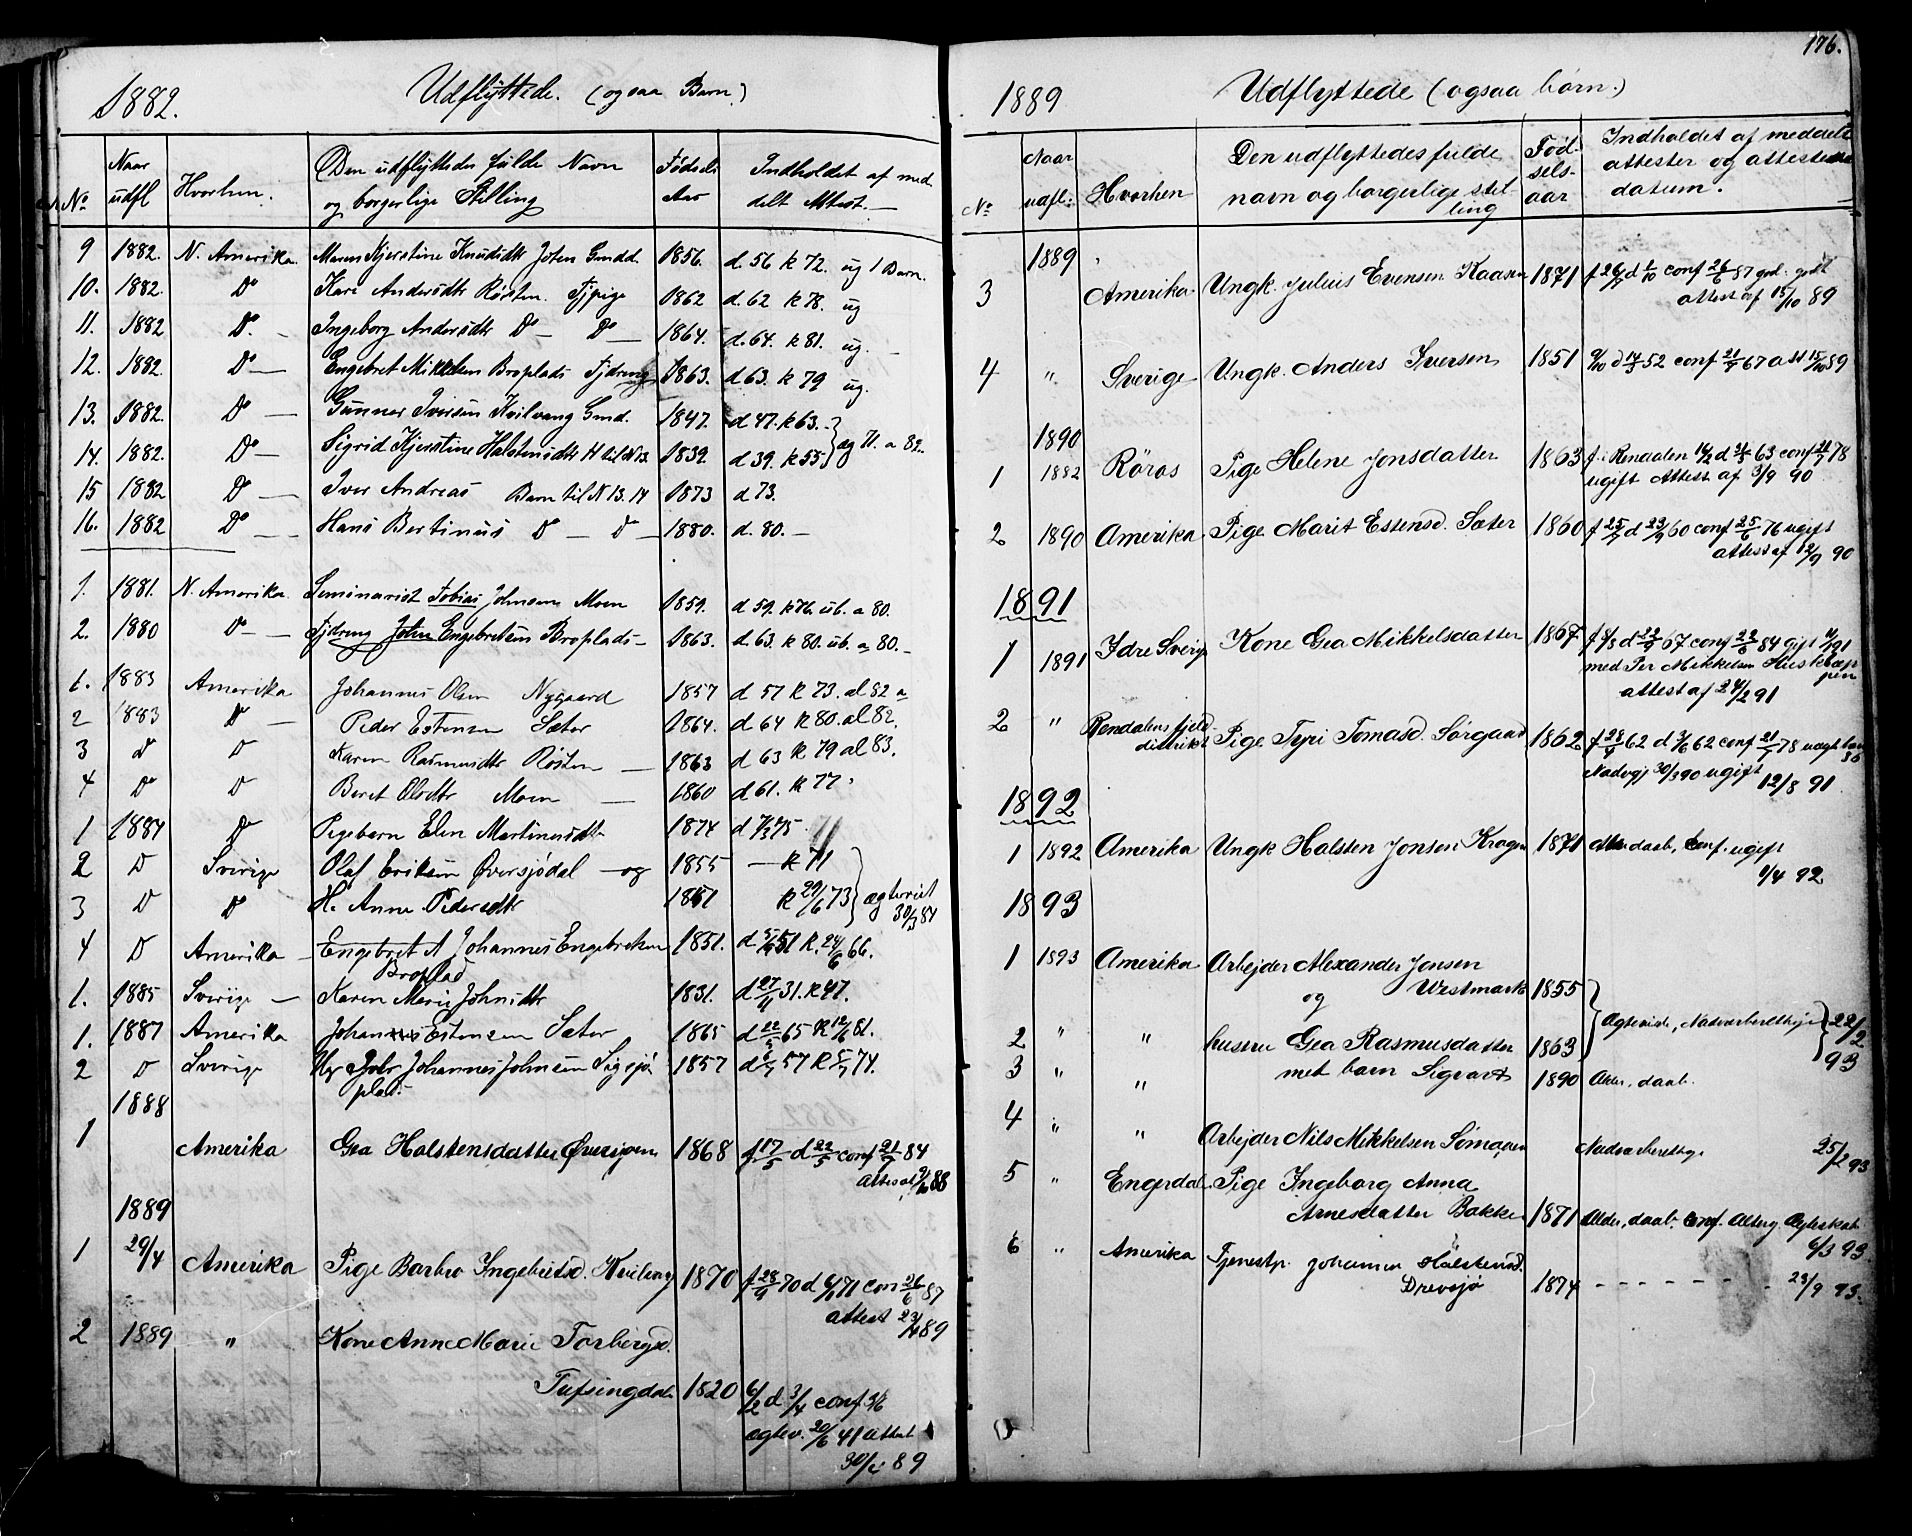 1882.
Udflyttede. (ogsaa Barn.)
No Naar udfl Hvorhen. Den udflyttedes fulde Navn og borgerlige Stilling Fødsels Aar Indholdet af med delt Attest.
9 1882. N. Amerika. Maren Kjerstine Knudsdtr Joten Gmdd. 1856. d. 56 k 72. ug 1 Barn.
10. 1882. Do Kari Andersdtr Røsten. Tjpige 1862 d. 62 k 78. ug
11. 1882 Do. — Ingeborg Andersdtr Do — Do — 1864. d. 64. k 81. ug.
12. 1882. Do — Engebret Mikkelsen Broplads Tjdreng 1863. d 63. k 79 ug.
13. 1882. Do — Gunner Iversen Kvilvang Gmd. 1847. d 47. k 63.
14. 1882. Do — Sigrid Kjerstine Halstensdtr H til N 13. 1839. d 39. k 55. } æg 71. a 82.
15 1882 Do — Iver Andreas Barn til N 13. 14 1873 d 73.
16. 1882 Do — Hans Bertinus Do — Do — 1880. d. 80. —
1. 1881. N. Amerika. Seminarist Tobias Johnsen Moen 1859. d 59. k 76. ub. a 80.
2. 1880 Do — Tjdreng John Engebretsen Broplads — 1863. d 63. k 80. ub. a 80. —
1. 1883 Amerika Johannes Olsen Nygaard 1857 d 57 k 73. al 82 a
2 1883 Do — Peder Estensen Sæter 1864. d 64 k 80. al 82.
3 Do Do Karen Rasmusdtr Røsten — 1863 d 63 k 79 al 83.
4 Do Do Beret Olsdtr Moen — 1860 d 61. k 77.
1 1884 Do Pigebarn Elen Martinusdtr 1874 d 7/3 75.
2 D Sverige Olaf Eriksen Øversjødal — og 1855 — k 71
3 D D H. Anne Pedersdtr 1857 k 29/6 73 } ægteviet 30/3 84
4 D Amerika — Engebret A Johannes Engebretsen Broplad 1851. d 5/4 51 k. 24/6 66.
1. 1885 Sverige — Karen Marie Johnsdtr 1831. d 27/11 31. k 47.
1. 1887 Amerika Johannes Estensen Sæter 1865 d 22/5 65 k 12/6 81.
2 D Sverige Johannes Johnsen Sigsjø plads. 1857 57 k 74.
1888
1 Amerika Gea Halstensdatter Øversjoen 1868 f 17/5 d 22/5 conf 21/7 84
88
1889
1 29/4 Amerika Pige Barbro Ingebretsd. Kvilvang 1870 f 28/9 70 d 6/1 71 con 26/6 87
attest 23/4 89
2 1889 " Kone Anne Marie Torbergsd.
Tufsingdal 1820 6/2 d 3/4 conf 36
ægtev. 20/6 41 attest
89
176.
1889
Udflyttede (ogsaa børn.)
No Naar udfl: Hvorhen Den udflyttedes fulde navn og borgerlige stilling Fødselsaar Indholdet af meddelt attester og attestens datum.
1889
3 Amerika Ungk. Julius Evensen Kaasen 1871 f 26/7 d 1/10 conf 26/6 87 god. godt
attest af 15/10 89
4 " Sverige Ungk. Anders Iversen 1851 9/10 d 14/3 52 conf 21/7 67 att 15/10 89
1890
1 1882 Röros Pige Helene Jonsdatter 1863 f. i Rendalen 14/2 d 63 conf 78
ugift Attest af 3/9 90
2 1890 Amerika Pige Marit Estensd. Sæter 1860 f 25/7 d 23/9 60 conf 25/6 76 ugift
attest af 12/9 90
1891
1 1891 Idre Sverig Kone Gea Mikkelsdatter 1867 f 8/8 d 22/9 67 conf 22/6 84 gift 91
med Per Mikkelsen
attest af 24/2 91
2 " Rendalens fjeld distrikt Pige Tyri Tomasd. Sørgaard 1862 f 28/4 62 d 62 conf 21/7 78
Nadvgj 30/3 90 ugift 12/8 91
1892
1 1892 Amerika Ungk Halsten Jonsen Kragen 1871 daab, Conf. ugift
1/4 92
1893
1 1893 Amerika Arbejder Alexander Jonsen
og Westmark 1855
2 " " hustru Gea Rasmusdatter 1863 } Ægteviede, Nadverberettige } 22/2 93
3 " " med barn Sigvart 1890 Alder, daab.
4 " " Arbejder Nils Mikkelsen Sømaaen Nadverberettige 25/2 93
5 " Engerdal. Pige Ingeborg Anna
Arnesdatter Bakken 1871 Alder, daab. Conf. Altrg. Ægteskab
6/3 93
6 " Amerika Tjenestp. Johanna Halstensd.
Drevsjø 1874 - - - - - - - 23/9 93.